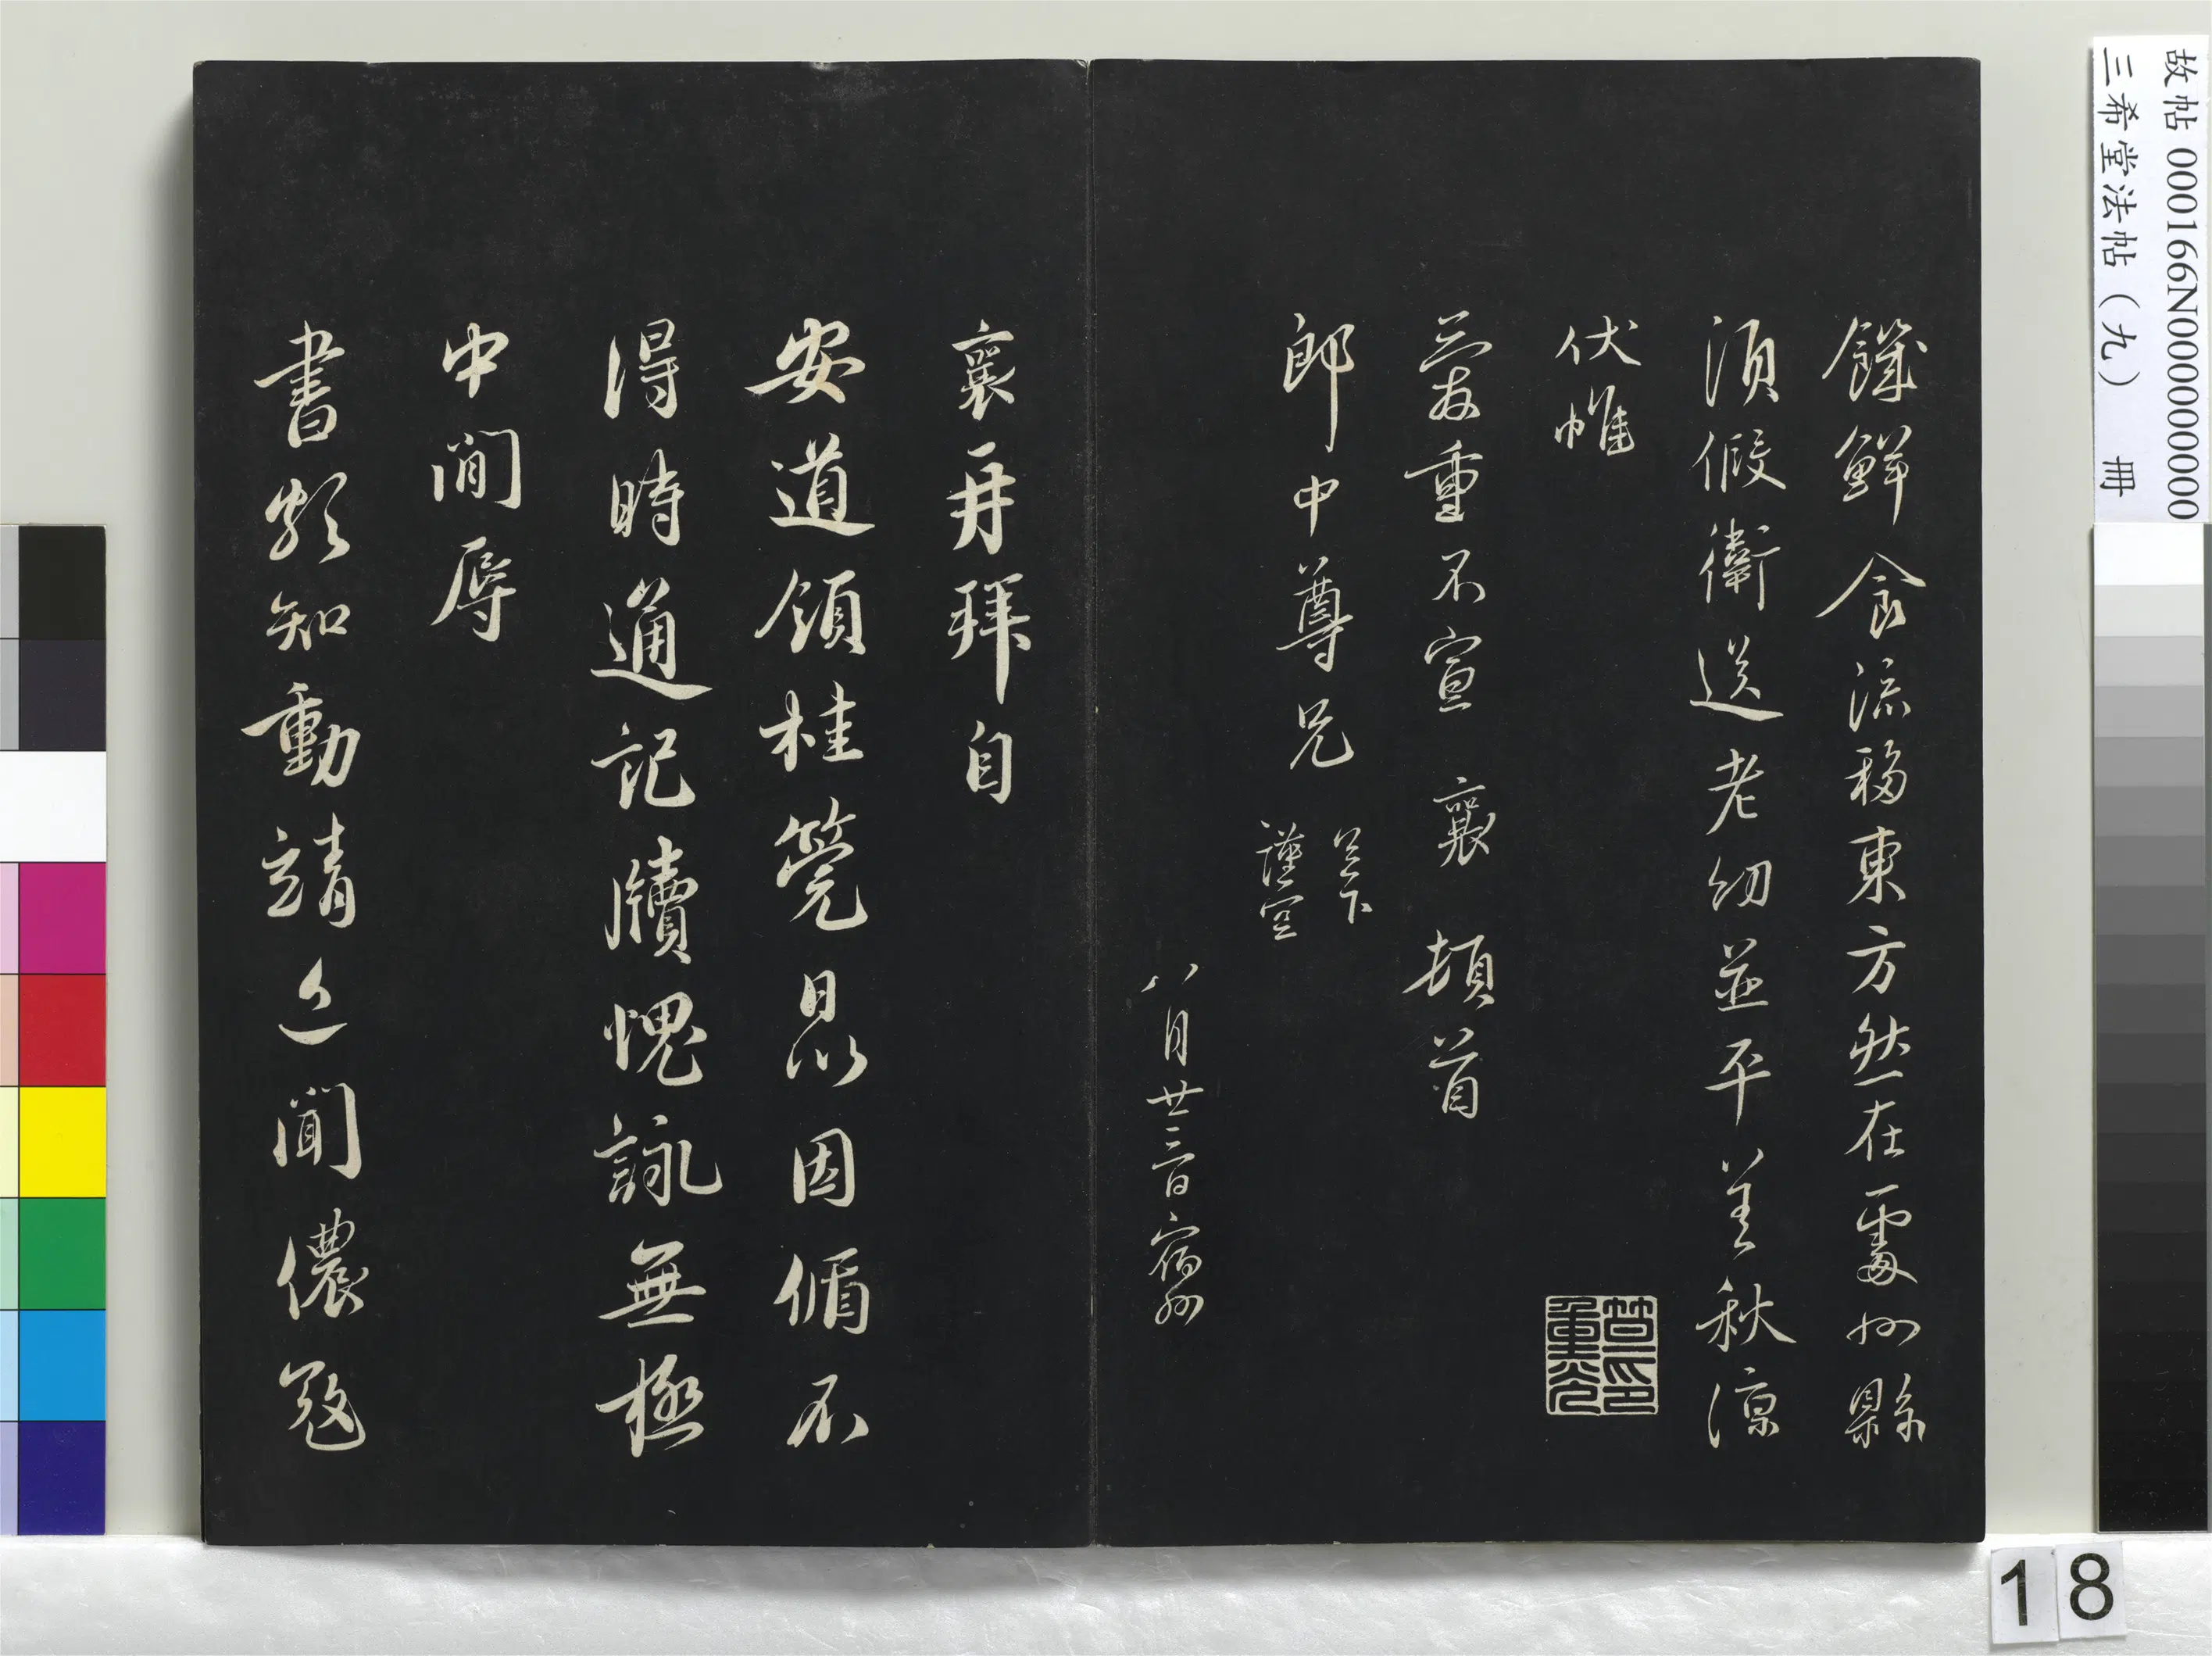 饑鮮食流移東方然在處州縣
須假衛送老幼並平善秋涼
伏惟
愛重不宣 襄 頓首
郎中尊兄
足下
謹空
八月廿三日宿州
襄再拜自
安道領桂筦是以因循不
得時通記牘愧詠無極
中間辱
書頗知動靖近聞儂寇
故帖 000166N000000000
三希堂法帖(九) 冊
18